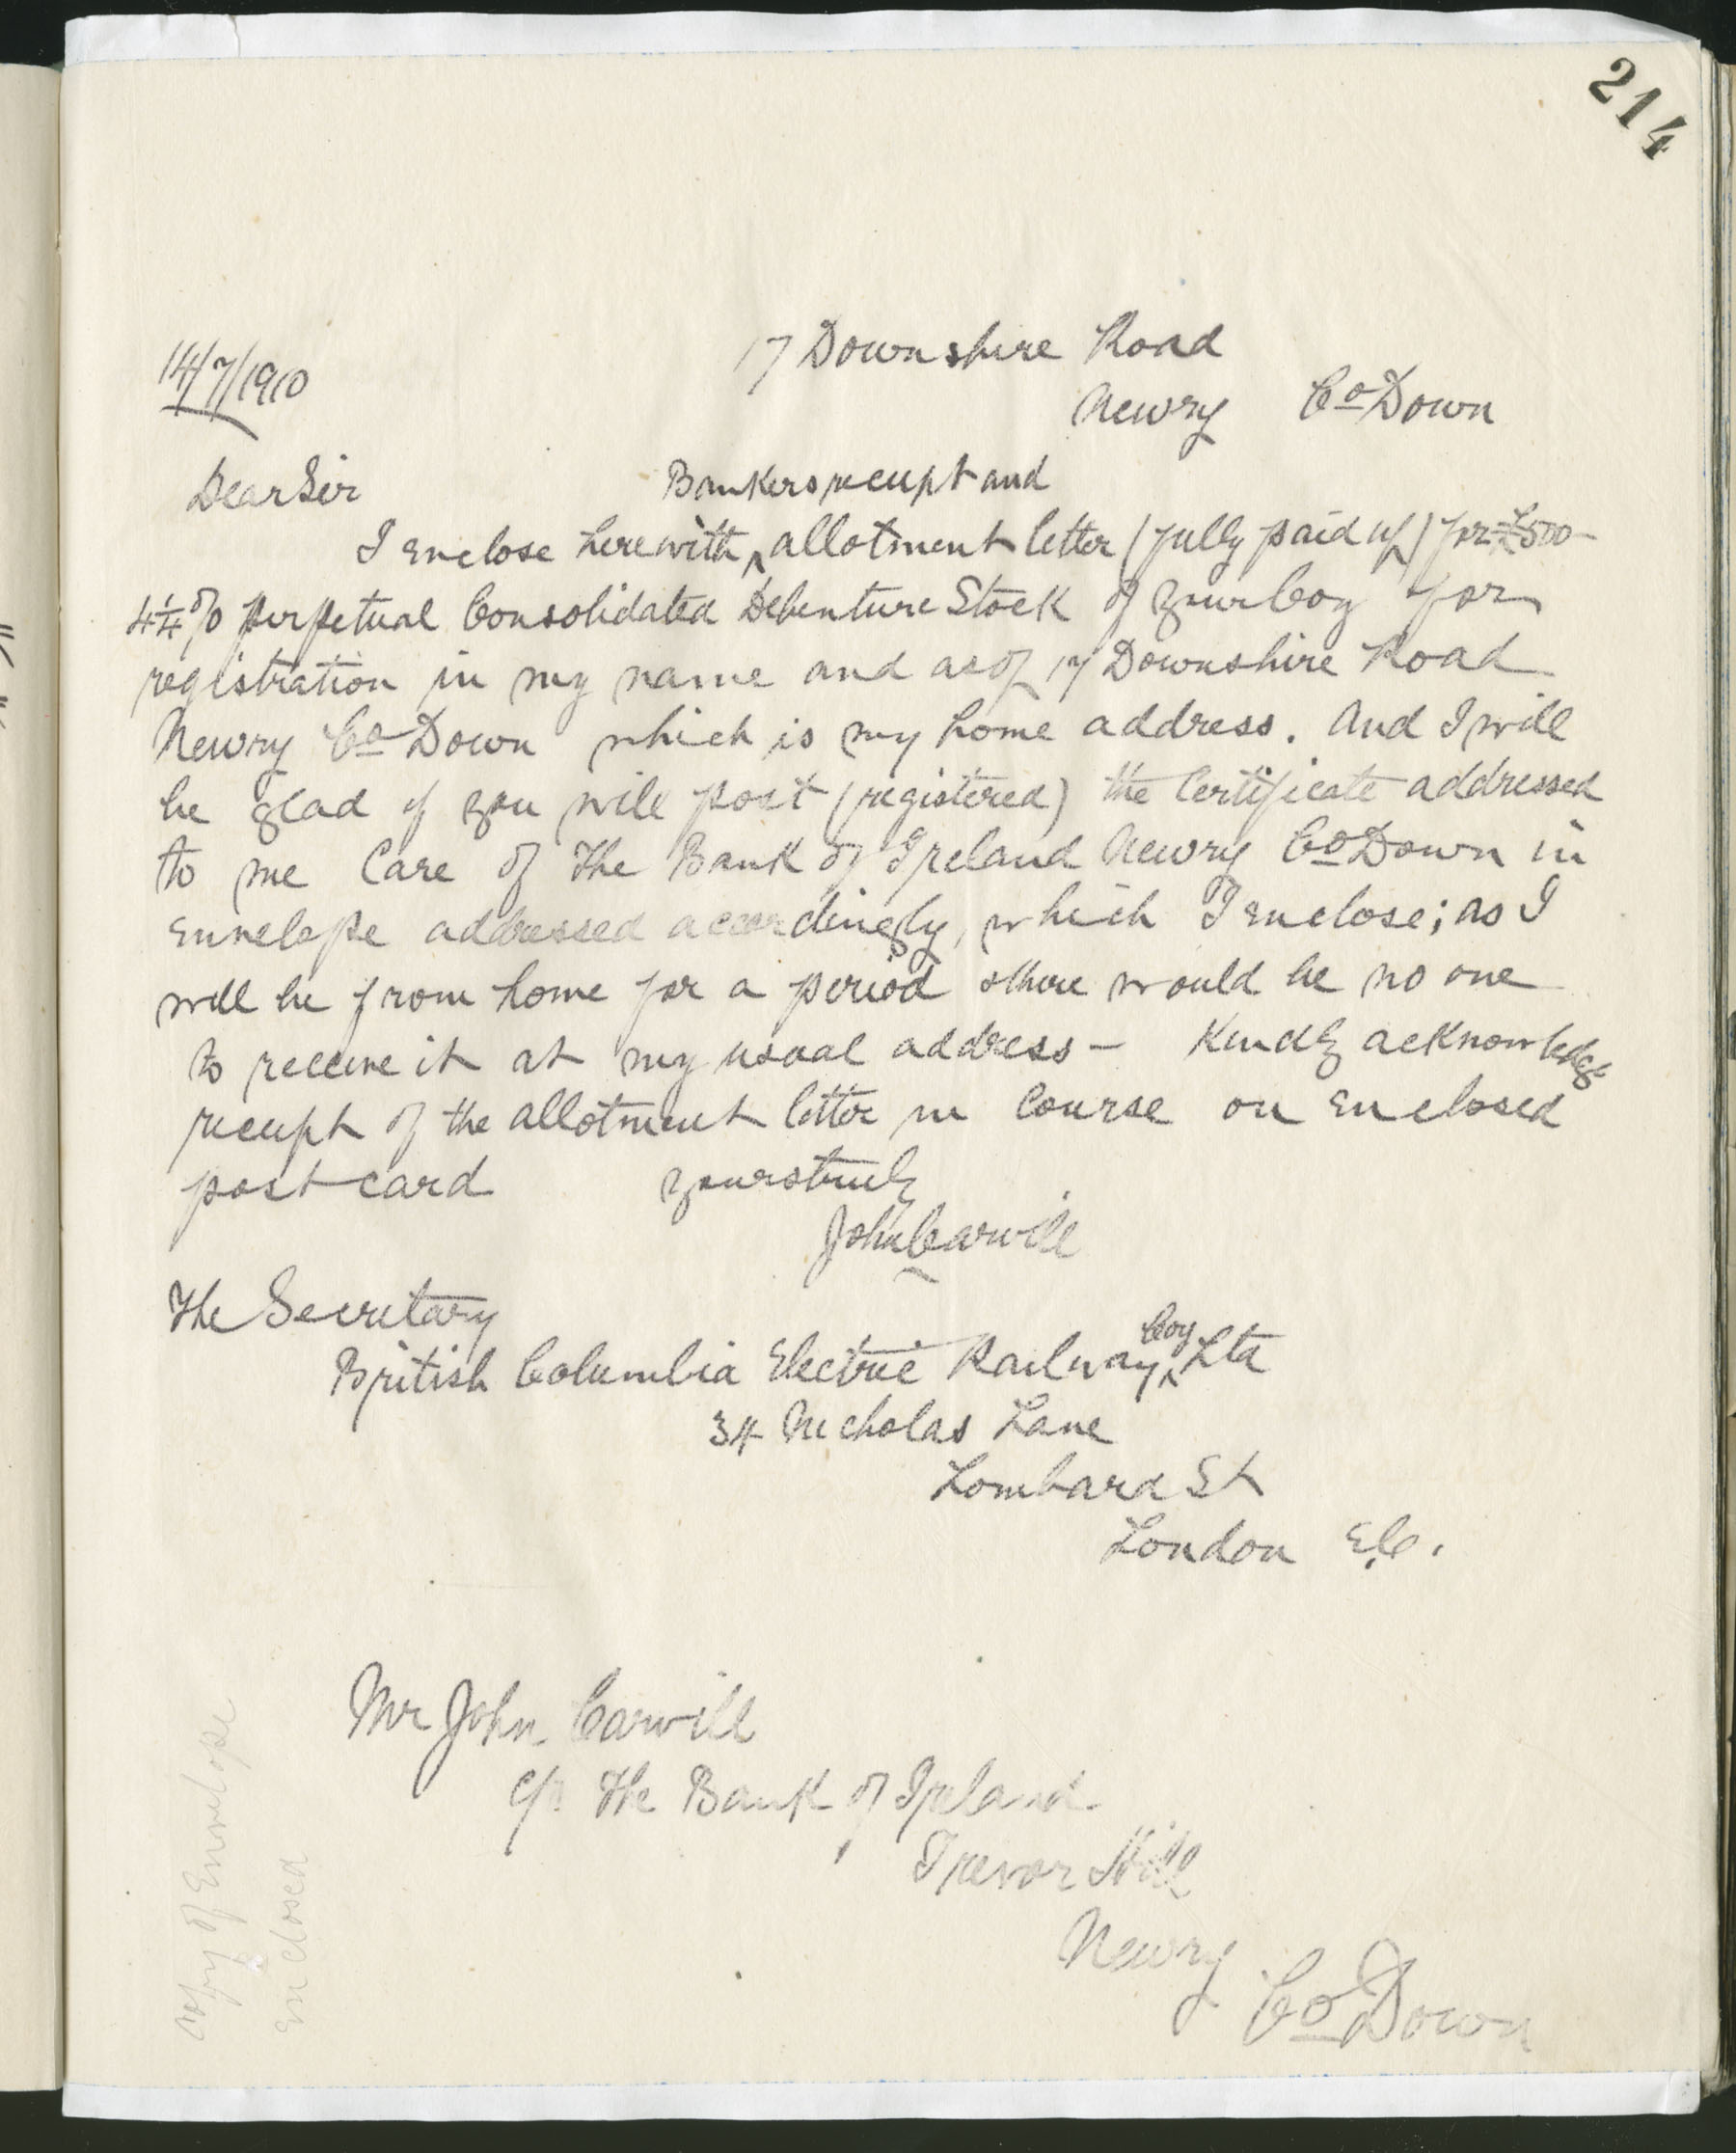 214
17 Downshire Road
14/7/1910
Newry Co Down
Dear Sir
Bankers receipt and
I enclose herewith ^ allotment letter (fully paid up) for £500
4¼% Perpetual Consolidated Debenture Stock of your Coy for
registration in my name and as of 17 Downshire Road
Newry Co Down which is my home address. And I will
be glad if you will post (registered) the Certificate addressed
to me Care of The Bank of Ireland Newry Co Down in
envelope addressed accordingly, which I enclose; as I
will be from home for a period & there would be no one
to receive it at my usual address - Kindly acknowledge
receipt of the allotment letter in Course on enclosed
post card yours truly
John Carvill
The Secretary
Coy
British Columbia Electric Railway ^ Ltd
34 Nicholas Lane
Lombard St
London E.C.
Mr John Carvill
c/o The Bank of Ireland
Trevor Hill
Newry
Co Down
Copy of Envelope
enclosed